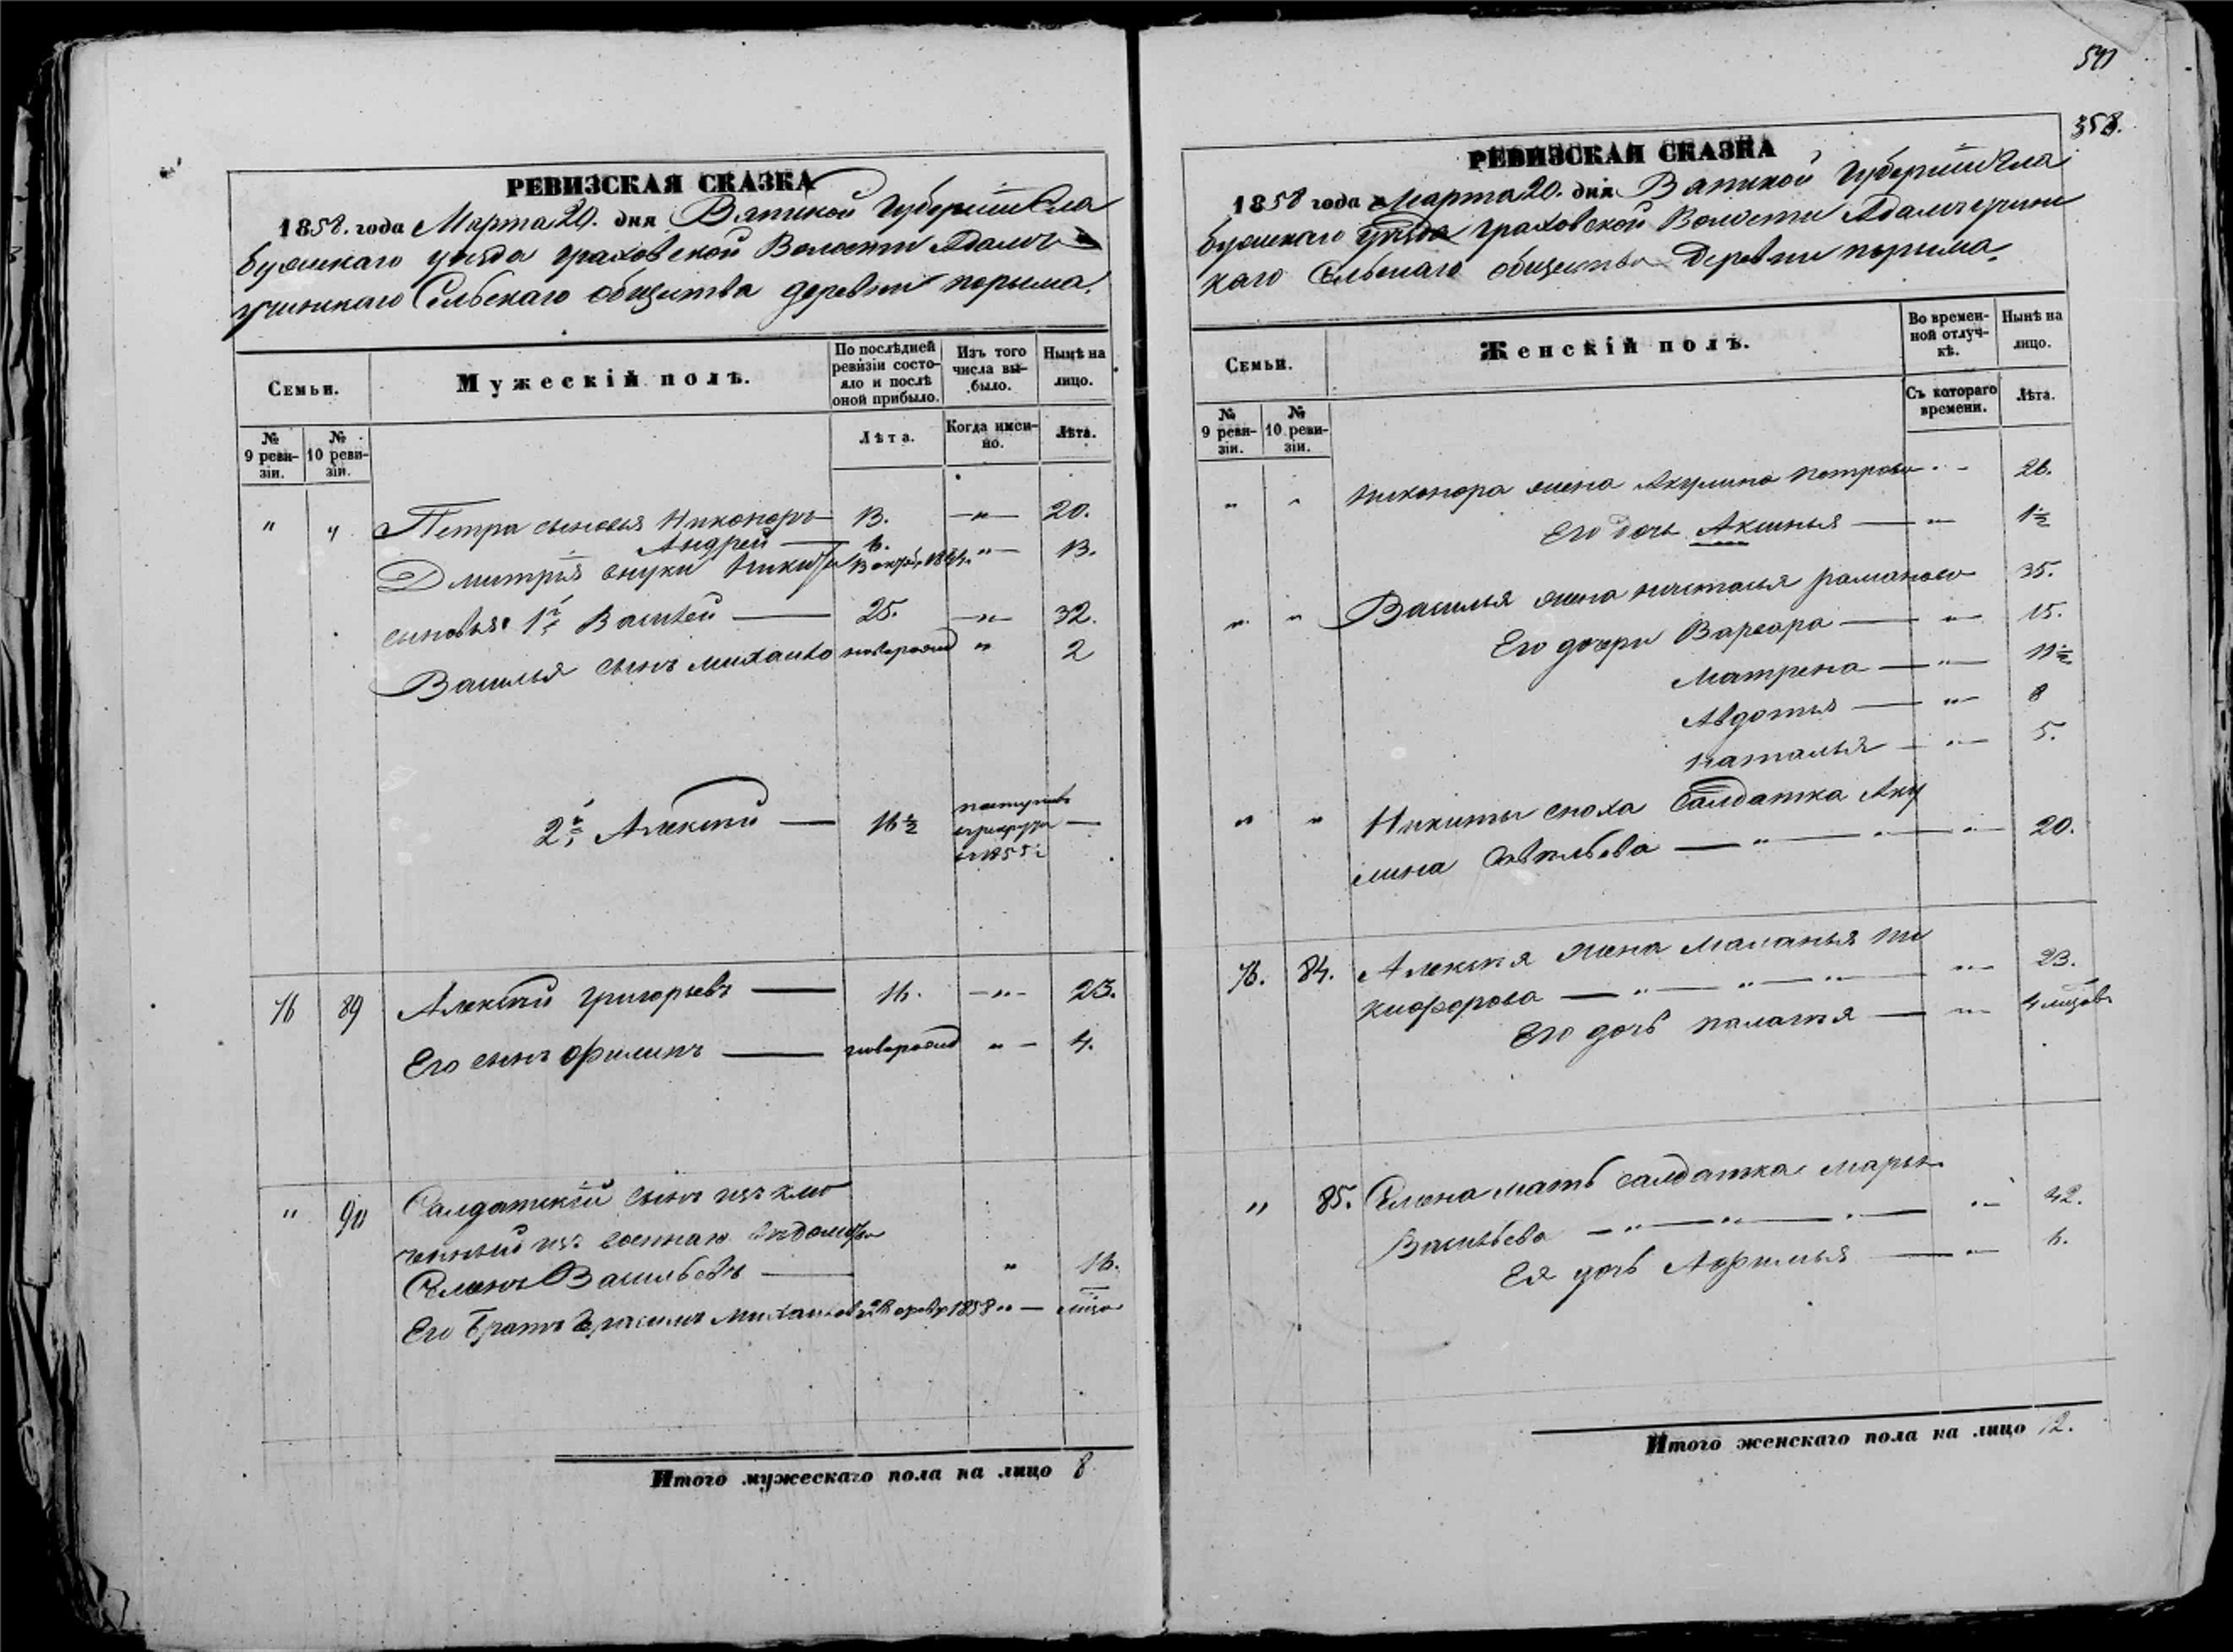 РЕВИЗСКАЯ СКАЗКА
1858. года Марта 20. дня Вятской Губерніи Ела
бужскаго уѣзда Граховской Волости Адамъ
учинскаго Сельскаго общества деревни Порыма.
Семьи.
Мужескій полъ.
По послѣдней ревизіи состояло и послѣ оной прибыло.
Изъ того числа выбыло.
Нынѣ на лицо.
№ 9 ревизіи.
№ 10 ревизіи.
Лѣта.
Когда именно.
Лѣта.
" " Петра сыновья Никоноръ 13. — " — 20.
Андрей — 6. " — 13.
Дмитрія внуки Никиты
сыновья 1й Василей — 25. — " — 32.
Василья сынъ Михайло новорожд " 2
2й Алексѣй — 16½ поступилъ
в рекруты —
в 1855 г
76 89 Алексѣй Григорьевъ — 16. — " — 23.
Его сынъ Филипъ — новорожд " — 4.
" 90 Салдатскій сынъ изъ клю
ченный изъ военнаго вѣдомства
Семенъ Васильевъ — " 16.
Его братъ Михайловъ 1858 " —
Итого мужескаго пола на лицо 8
541
358.
РЕВИЗСКАЯ СКАЗКА
1858 года Марта 20. дня Вятской Губерніи Ела
бужскаго уѣзда Граховской Волости Адамъ учинс
каго Сельскаго общества Деревни Порыма.
Семьи.
Женскій полъ.
Во временной отлучкѣ.
Нынѣ на лицо.
№ 9 ревизіи.
№ 10 ревизіи.
Съ котораго времени.
Лѣта.
" " Никонора жена Акулина Петрова - - 26.
Его дочь Аксинья — " — 1½
" " Василья жена Настасья Романова 35.
Его дочери Варвара — " — 15.
Матрена — " — 11½
Авдотья — " — 8
Наталья — " — 5.
" " Никиты сноха Салдатка Аку
лина Савельева — " — " — " — 20.
76. 84. Алексѣя жена Маланья Ни
кифорова — " — " — " — " — 23.
Его дочь Палагѣя — " — 4 мѣсяцовъ
" 85. Семена мать салдатка Марья
Васильева — " — " — " — " — 42.
Ея дочь Афимья — " — 6.
Итого женскаго пола на лицо 12.